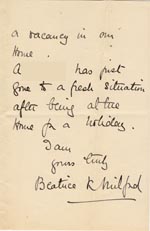 a vacancy in our
Home.
A has just
gone to a fresh situation
after being at the
Home for a holiday.
I am
yours truly
Beatrice K Milford